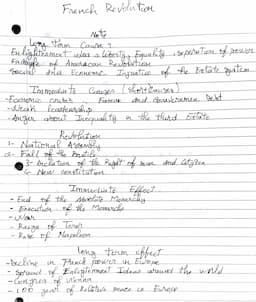 French Revolution
Note
Long Term Causes :
Enlightenment idea - liberty, Equality, separation of power
Example of American Revolution
Social and Economic Injustice of the Estate System
Immediate Causes (short causes)
- Economic crisis - Famine and Government Debt
- Weak leadership
- Anger about Inequality in the third Estate
Revolution
1- National Assembly
2- Fall of the Bastile
3- Declaration of the Right of man and citizen
4- New constitution
Immediate Effect
- End of the Absolute Monarchy
- Execution of the Monarchs
- War
- Reign of Terror
- Rise of Napoleon
Long term effect
- Decline in French power in Europe
- Spread of Enlightenment Ideas around the world
- Congress of Vienna
- 100 year of Relative peace in Europe